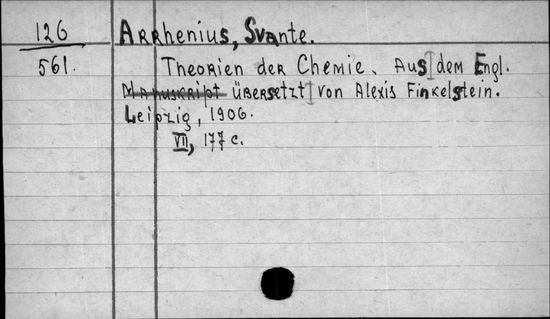 126
561.
Arrhenius, Svante.
Theorien der Chemie. Aus dem Engl.
Manuskript übersetzt von Alexis Finkelstein.
Leipzig, 1906.
VII, 177 c.